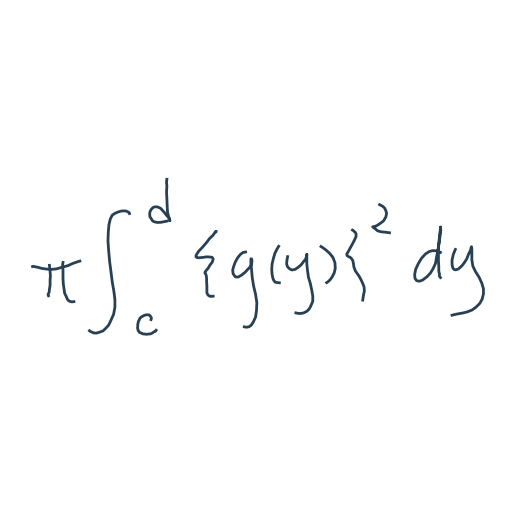 \pi \int_{c}^{d} \{ g(y) \{^{2} dy